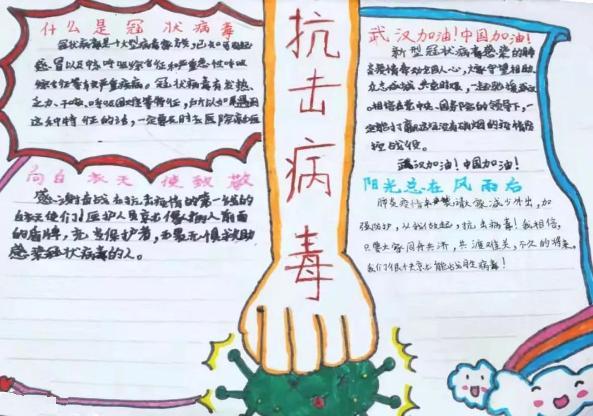 什么是冠状病毒
冠状病毒是一个大型病毒家族,已知可引起
感冒以及中东呼吸综合征和严重急性呼吸
综合征等较严重疾病。冠状病毒有发热、
乏力、干咳、呼吸困难等特征,所以如果遇到
这种特征的话,一定要及时去医院就医
向白衣天使致敬
感谢射击战在抗击疫情的第一线的
白衣天使们!医护人员宗旨像病人前面
的盾牌,充当保护者,毫无畏惧救助
感染冠状病毒的人。
抗击病毒
武汉加油!中国加油!
新型冠状病毒感染的肺
炎疫情牵动全国人心,大家守望相助、
众志成城、共克时艰,一起驰援武汉
相信在党中央、国务院的领导下,一
定能打赢这没有硝烟的疫情防
控战役。
武汉加油!中国加油!
阳光总在风雨后
肺炎疫情来袭请大家减少外出,加
强防护,从我做起,抗击病毒!我相信,
只要大家同舟共济,共渡难关,不久的将来,
我们很快就能战胜病毒!